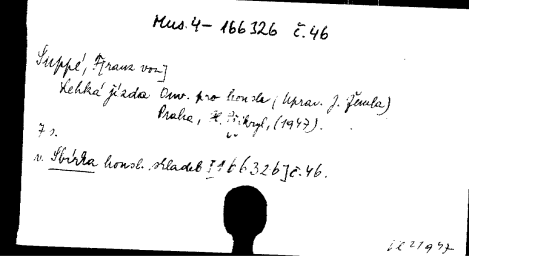 Mus. 4 - 166326 č. 46
Suppé, F[ranz von]
Lehká jízda. Ouv. pro housle, (Uprav. J. Žemla)
Praha, Přikryl, (1947).
7 s.
v. Sbírka housl. skladeb [166326] č. 46.